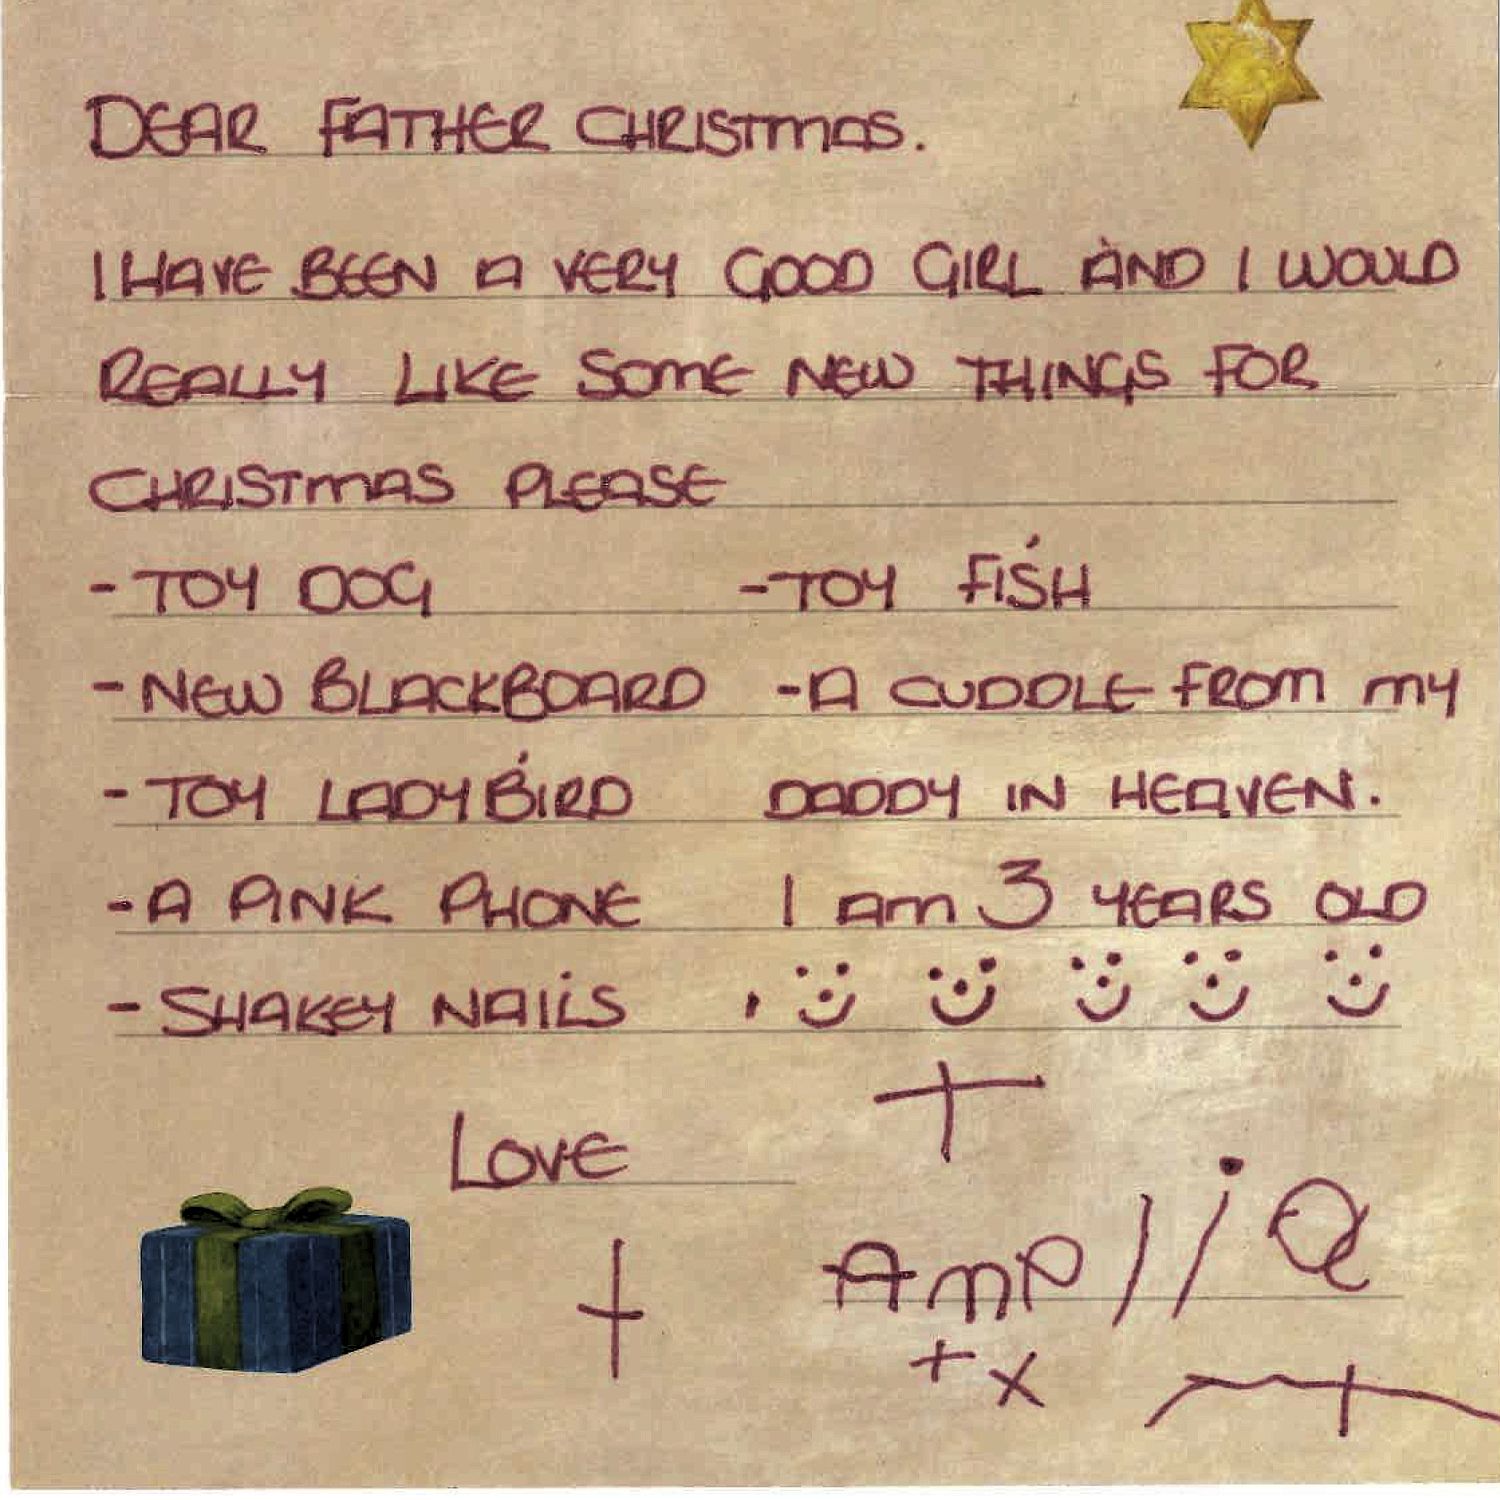 DEAR FATHER CHRISTMAS.
I HAVE BEEN A VERY GOOD GIRL AND I WOULD
REALLY LIKE SOME NEW THINGS FOR
CHRISTMAS PLEASE
- TOY DOG - TOY FISH
- NEW BLACKBOARD - A CUDDLE FROM MY
- TOY LADYBIRD DADDY IN HEAVEN.
- A PINK PHONE I AM 3 YEARS OLD
- SHAKEY NAILS
LOVE